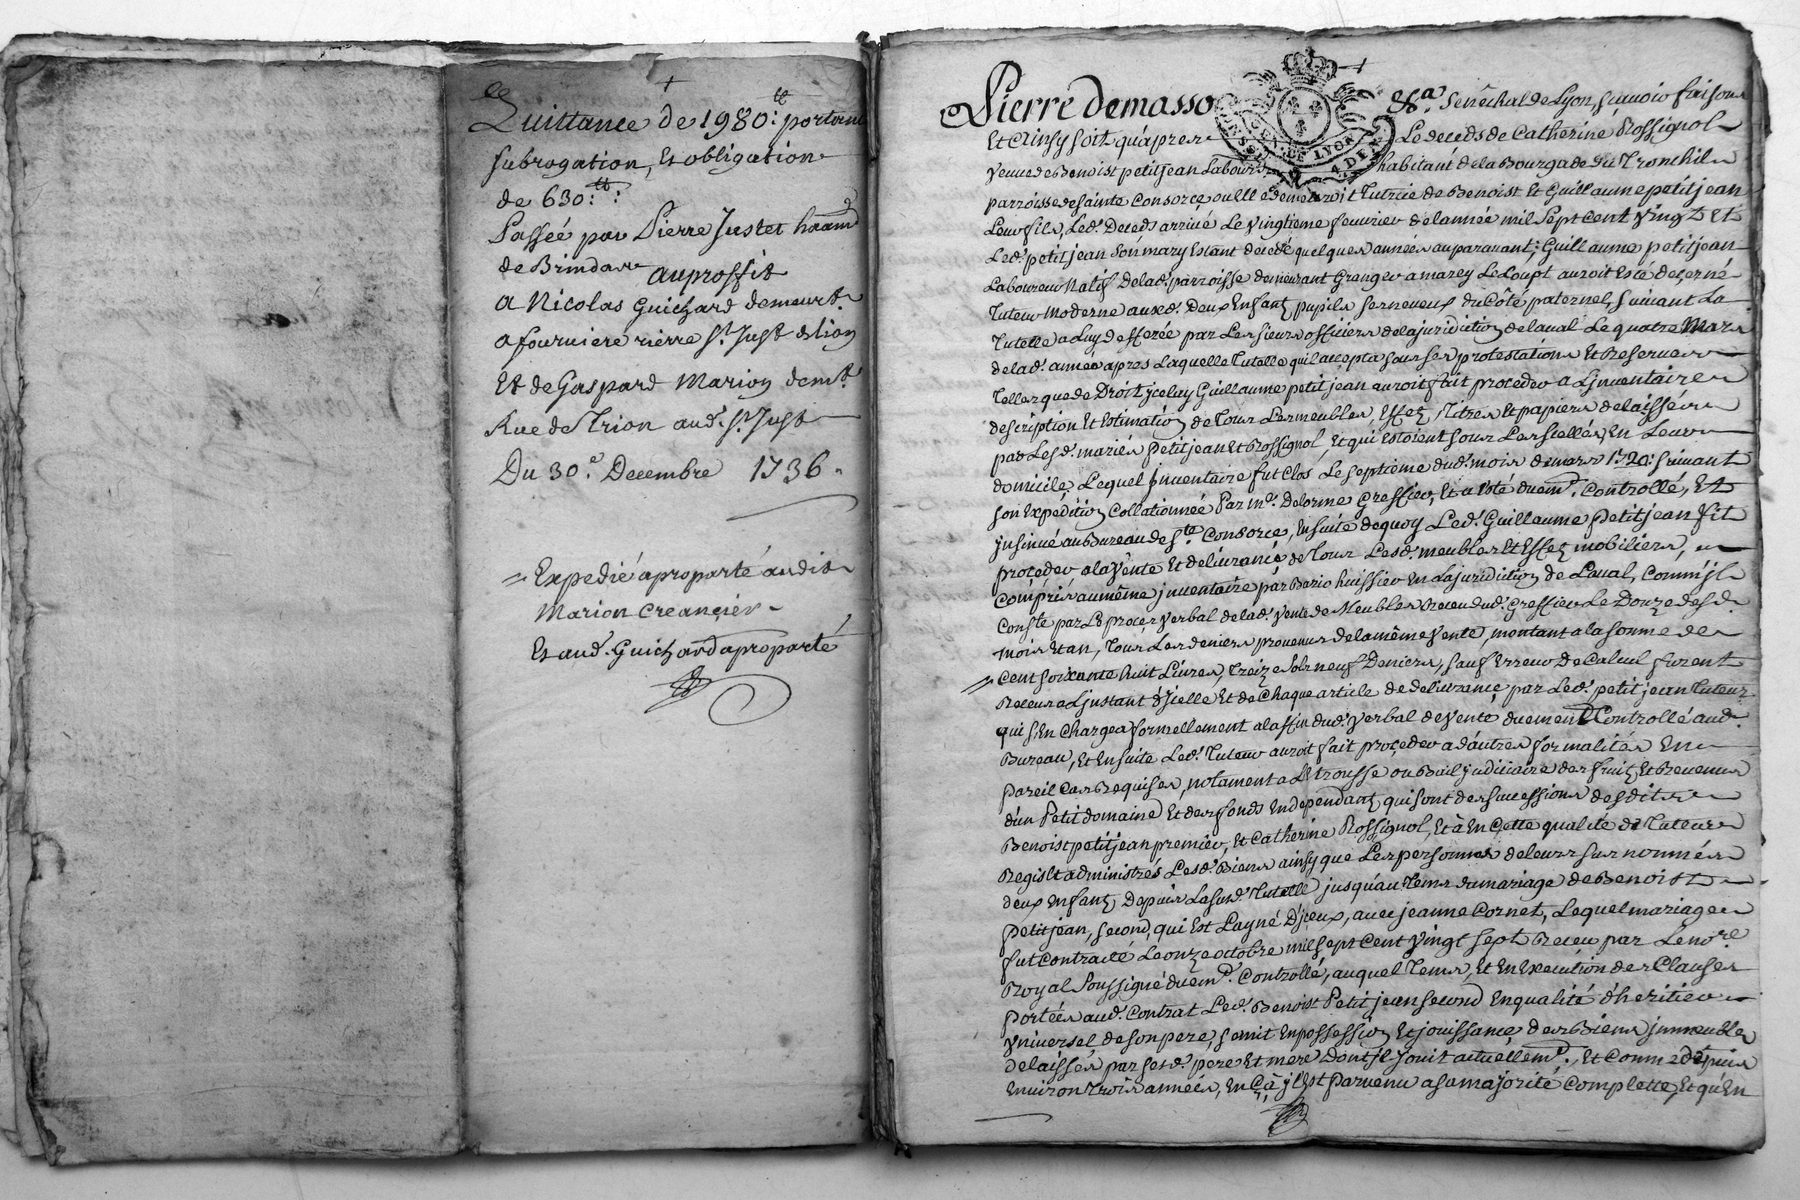 Quittance de 1980:tt portant
subrogation, Et obligation
de 630:tt:
Passée par Pierre Justet hand
de Brindas auproffit
a Nicolas Guichard demeurt
a fourviere rierre St Just de lion
Et de Gaspard Marion demt
Rue de Trion aud. St Just
Du 30e Decembre 1736.
Expedié aproparté audit
Marion creancier
Et aud. Guichard aproparté
Pierre Demasso &a. Senéchal de Lyon, scavoir faisons
GEN. DE LYON
4 DEN
Et Ainsy soit qu'apres Le deceds de Catherine Rossignol
veuve de Benoist petitjean Laboureur habitant de la Bourgade du Tronchil
parroisse de sainte Consorce ou elle demeuroit Tutrice de Benoist Et Guillaume petitjean
Leur fils, Led. Deceds arrivé Le vingtieme fevrier de l'année mil Sept cent vingt Et
Led. petitjean Son mary Estant decedé quelques années auparavant; Guillaume petitjean
Laboureur Natif de lad. parroisse demeurant Granger a marcy Le Loupt auroit Esté decerné
Tuteur moderne auxd. Deux Enfans pupils ses neveux du Côté paternel, suivant La
Tutelle a Luy defferée par Les sieurs officiers de la juridiction de laval Le quatre Mars
de lad. année apres Laquelle Tutelle qu'il accepta sous ses protestations Et Reserves
Telles que de Droit iceluy Guillaume petitjean auroit fait proceder a L'inventaire
description Et Estimation de Tous Les meubles, Effets, Titres Et papiers delaissés
par Lesd. mariés petitjean Et Rossignol, Et qui Estoient sous Les scellés, En Leur
domicile, Lequel inventaire fut clos Le septieme dud. mois de mars 1720: suivant
son Expedition Collationnée Par me. Delorme Greffier, Et a esté duemt. Controllé, Et
insinué au Bureau de Ste Consorce, Ensuite de quoy Led. Guillaume Petitjean fit
proceder a la vente Et delivrance de Tous Lesd. meubles Et Effets mobiliers,
Compris au même inventaire par Berio huissier En La juridiction de Laval, Comm'il
Conste par Le proces verbal de lad. vente de Meubles Receu dud. Greffier Le Douze desd.
mois Et an, Tous Les deniers provenus de la même vente, montant a la somme de
Cent soixante huit Livres, Treize sols neuf Deniers, sauf Erreur De Calcul furent
Receus a L'instant d'icelle Et de Chaque article de delivrance par Led. petitjean Tuteur
qui s'En Chargea formellement a la fin dud. verbal de vente duement Controllé aud.
Bureau, Et Ensuite Led. Tuteur auroit fait proceder a d'autres formalités En
pareil Cas Requises, notament a L'Etrousse ou Bail judiciaire des fruits Et Revenus
d'un Petit domaine Et des fonds En dependants qui sont des successions desdits
Benoist petitjean premier, Et Catherine Rossignol, Et à En Cette qualité de Tuteur
Regis Et administrés Lesd. Biens ainsy que Les personnes de leurs sus nommés
deux Enfans, Depuis Lasusd. Tutelle jusqu'au Tems du mariage de Benoist
petitjean, second, qui Est L'ayné D'iceux, avec jeanne Cornet, Lequel mariage
fut Contracté Le onze octobre mil sept Cent vingt sept Receu par Le nore
Royal Soussigné duemt. Controllé, auquel Tems, Et En Execution des Clauses
portées aud. Contrat Led. Benoist Petitjean second En qualité d'heritier
vniversel de son pere, s'emit En possession Et jouissance des Biens immeubles
delaissés par sesd. pere Et mere Dont il Jouit actuellemt., Et Comme depuis
Environ Trois années, En Cà il Est Parvenu a sa majorité Complette, Et qu'En